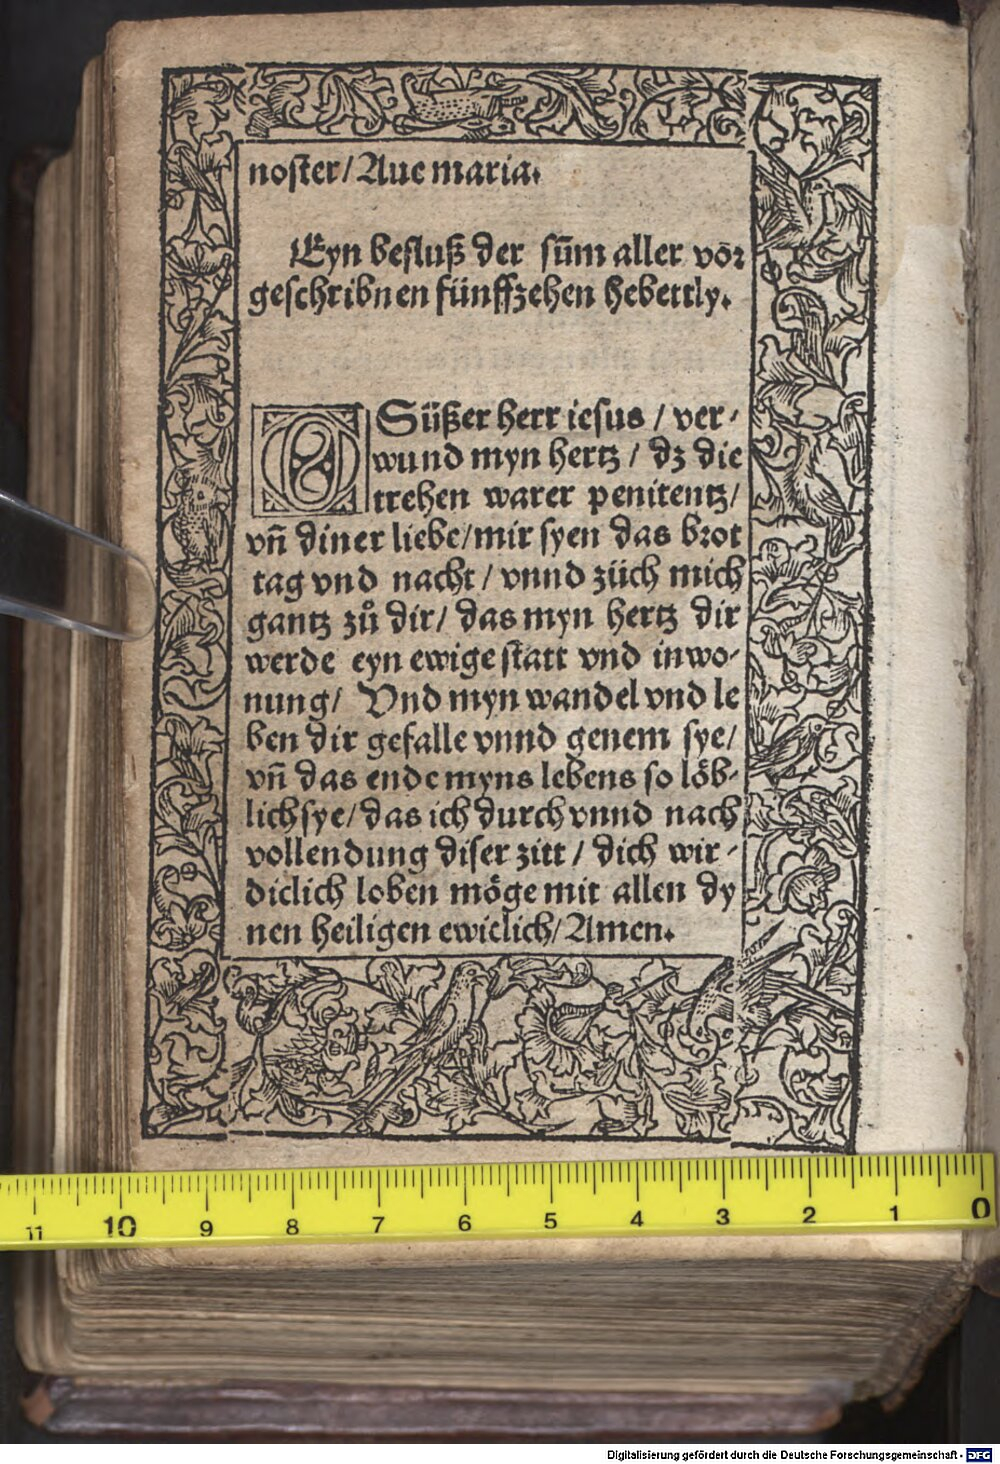 noster/ Aue maria.
Eyn besluß der sūm aller vor
geschribnen fünffzehen gebettly.
O Süßer herr iesus / ver-
wund myn hertz / dz die
trehen warer penitentz/
vn̄ diner liebe/ mir syen das brot
tag vnd nacht / vnnd züch mich
gantz zů dir/ das myn hertz dir
werde eyn ewige statt vnd inwo-
nung/ Vnd myn wandel vnd le
ben dir gefalle vnnd genem sye/
vn̄ das ende myns lebens so löb-
lich sye/ das ich durch vnnd nach
vollendung diser zitt / dich wir-
diclich loben möge mit allen dy
nen heiligen ewiclich/ Amen.
11 10 9 8 7 6 5 4 3 2 1 0
Digitalisierung gefördert durch die Deutsche Forschungsgemeinschaft - DFG